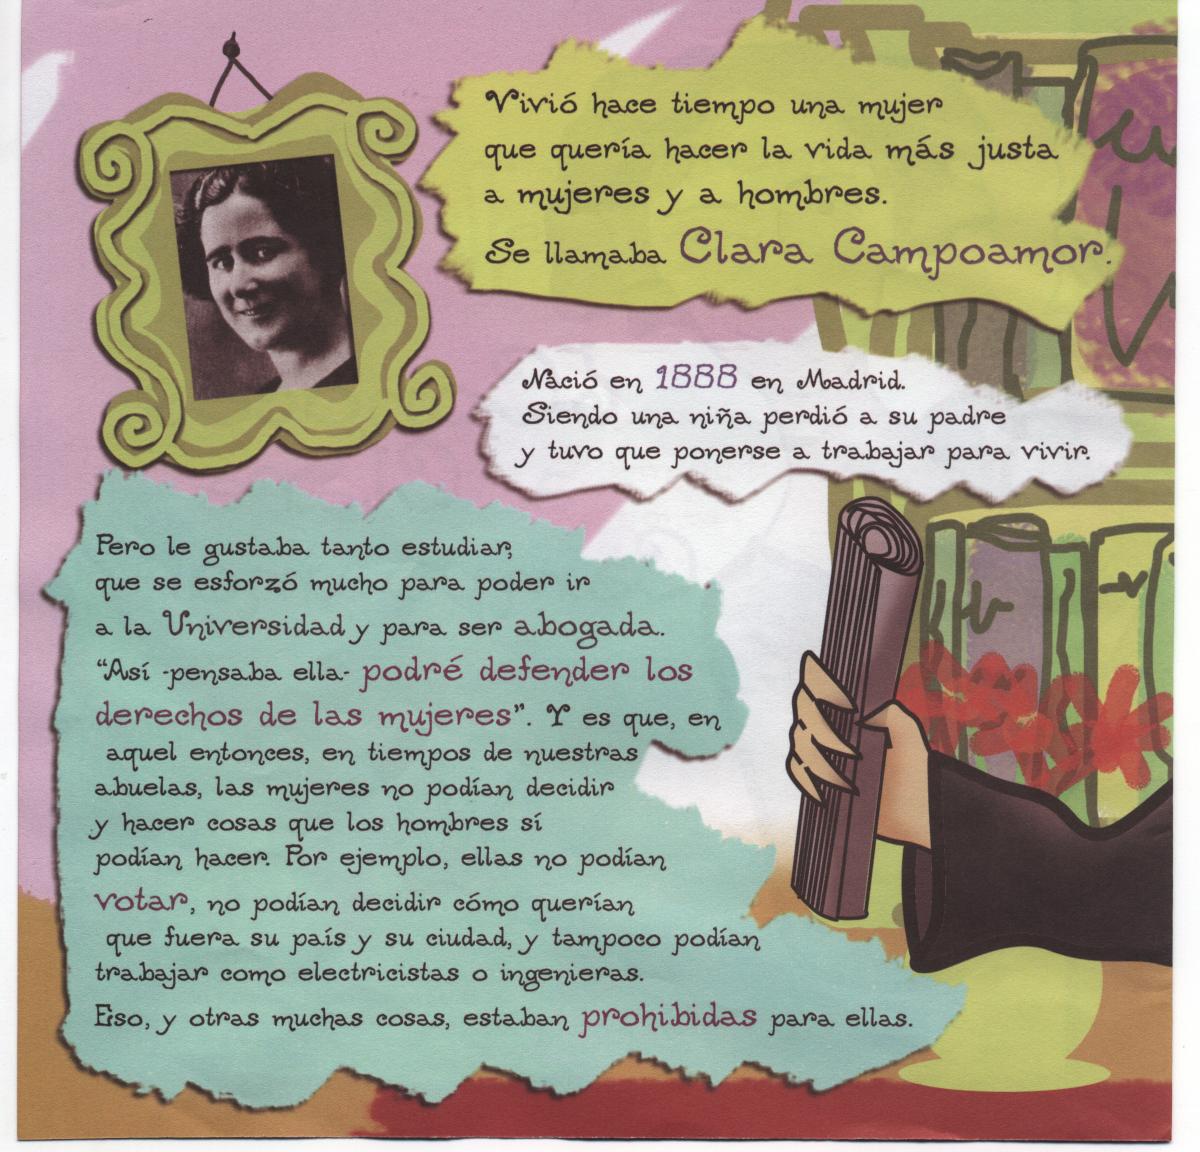 Vivió hace tiempo una mujer
que quería hacer la vida más justa
a mujeres y a hombres.
Se llamaba Clara Campoamor.
Nació en 1888 en Madrid.
Siendo una niña perdió a su padre
y tuvo que ponerse a trabajar para vivir.
Pero le gustaba tanto estudiar,
que se esforzó mucho para poder ir
a la Universidad y para ser abogada.
“Así -pensaba ella- podré defender los
derechos de las mujeres”. Y es que, en
aquel entonces, en tiempos de nuestras
abuelas, las mujeres no podían decidir
y hacer cosas que los hombres sí
podían hacer. Por ejemplo, ellas no podían
votar, no podían decidir cómo querían
que fuera su país y su ciudad, y tampoco podían
trabajar como electricistas o ingenieras.
Eso, y otras muchas cosas, estaban prohibidas para ellas.